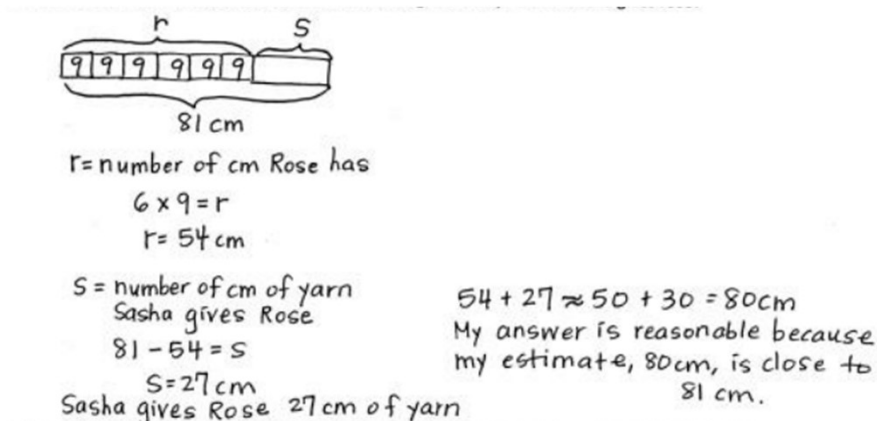 r
S
9 9 9 9 9 9
81 cm
r= number of cm Rose has
6 x 9 = r
r= 54 cm
S = number of cm of yarn
Sasha gives Rose
81 - 54 = S
S= 27 cm
Sasha gives Rose 27 cm of yarn
54 + 27 ≈ 50 + 30 = 80cm
My answer is reasonable because
my estimate, 80cm, is close to
81 cm.